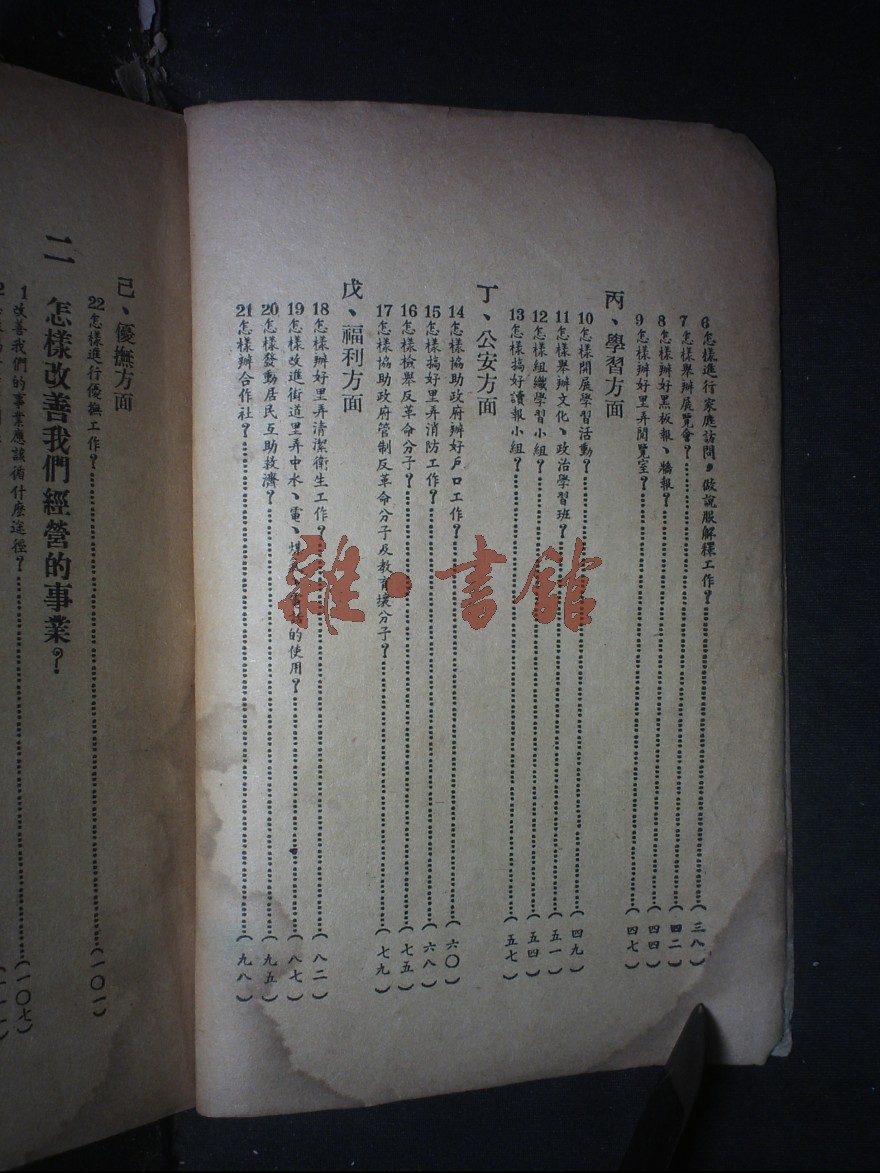 6 怎樣進行家庭訪問，做說服解釋工作？……（三八）
7 怎樣舉辦展覽會？……（四二）
8 怎樣辦好黑板報、牆報？……（四四）
9 怎樣辦好里弄閱覽室？……（四七）
丙、學習方面
10 怎樣開展學習活動？……（四九）
11 怎樣舉辦文化、政治學習班？……（五一）
12 怎樣組織學習小組？……（五四）
13 怎樣搞好讀報小組？……（五七）
丁、公安方面
14 怎樣協助政府辦好戶口工作？……（六〇）
15 怎樣搞好里弄消防工作？……（六八）
16 怎樣檢舉反革命分子？……（七五）
17 怎樣協助政府管制反革命分子及教育壞分子？……（七九）
戊、福利方面
18 怎樣辦好里弄清潔衛生工作？……（八二）
19 怎樣改進街道里弄中水、電、煤的使用？……（八七）
20 怎樣發動居民互助救濟？……（九五）
21 怎樣辦合作社？……（九八）
己、優撫方面
22 怎樣進行優撫工作？……（一〇一）
二 怎樣改善我們經營的事業？
1 改善我們的事業應該循什麼途徑？……（一〇七）
雜·書館